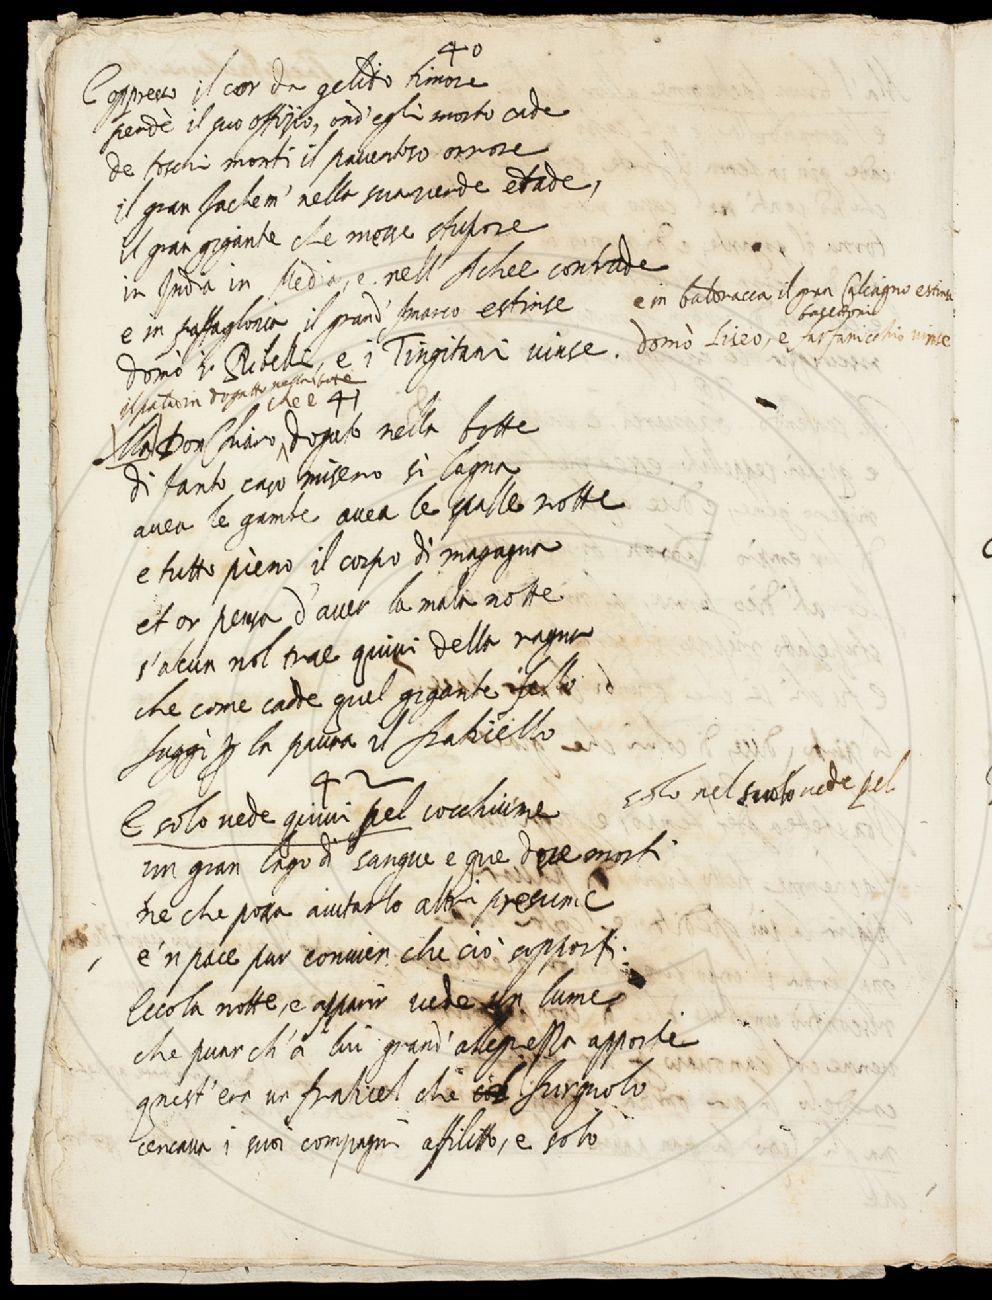 40
E oppresso il cor da gelido timore
perdè il suo offizio, ond'egli morto cade
de toschi monti il paventoso orrore
il gran Jachem' nella sua verde etade,
il gran gigante che mosse stupore
in India in Media, e nell' contrade
e in il grand' Smarco estinse
e in baldracca il gran Calcagno estinse
domò i Ribelli, e i Tingitani vinse.
domò Liseo, e vinse
che è 41
Ma Don Chiaro dogato nella botte
di tanto caso misero si lagna
avea le gambe avea le spalle rotte
e tutto pieno il corpo di magagna
et or pensa d'aver la mala notte
s'alcun nol trae quivi della ragna
che come cadde quel gigante fello
fuggì p la paura il fraticello
42
E solo vede quivi pel cocchiume
solo nel suolo vede pel
un gran lago di sangue e que due morti
ne che possa aiutarlo altri presume
e 'n pace pur convien che ciò sopporti.
Ecco la notte, e apparir vede un lume
che par ch'a lui grand'allegrezza apporti
quest'era un fraticel che Furgnolo
cercava i suoi compagni afflitto, e solo